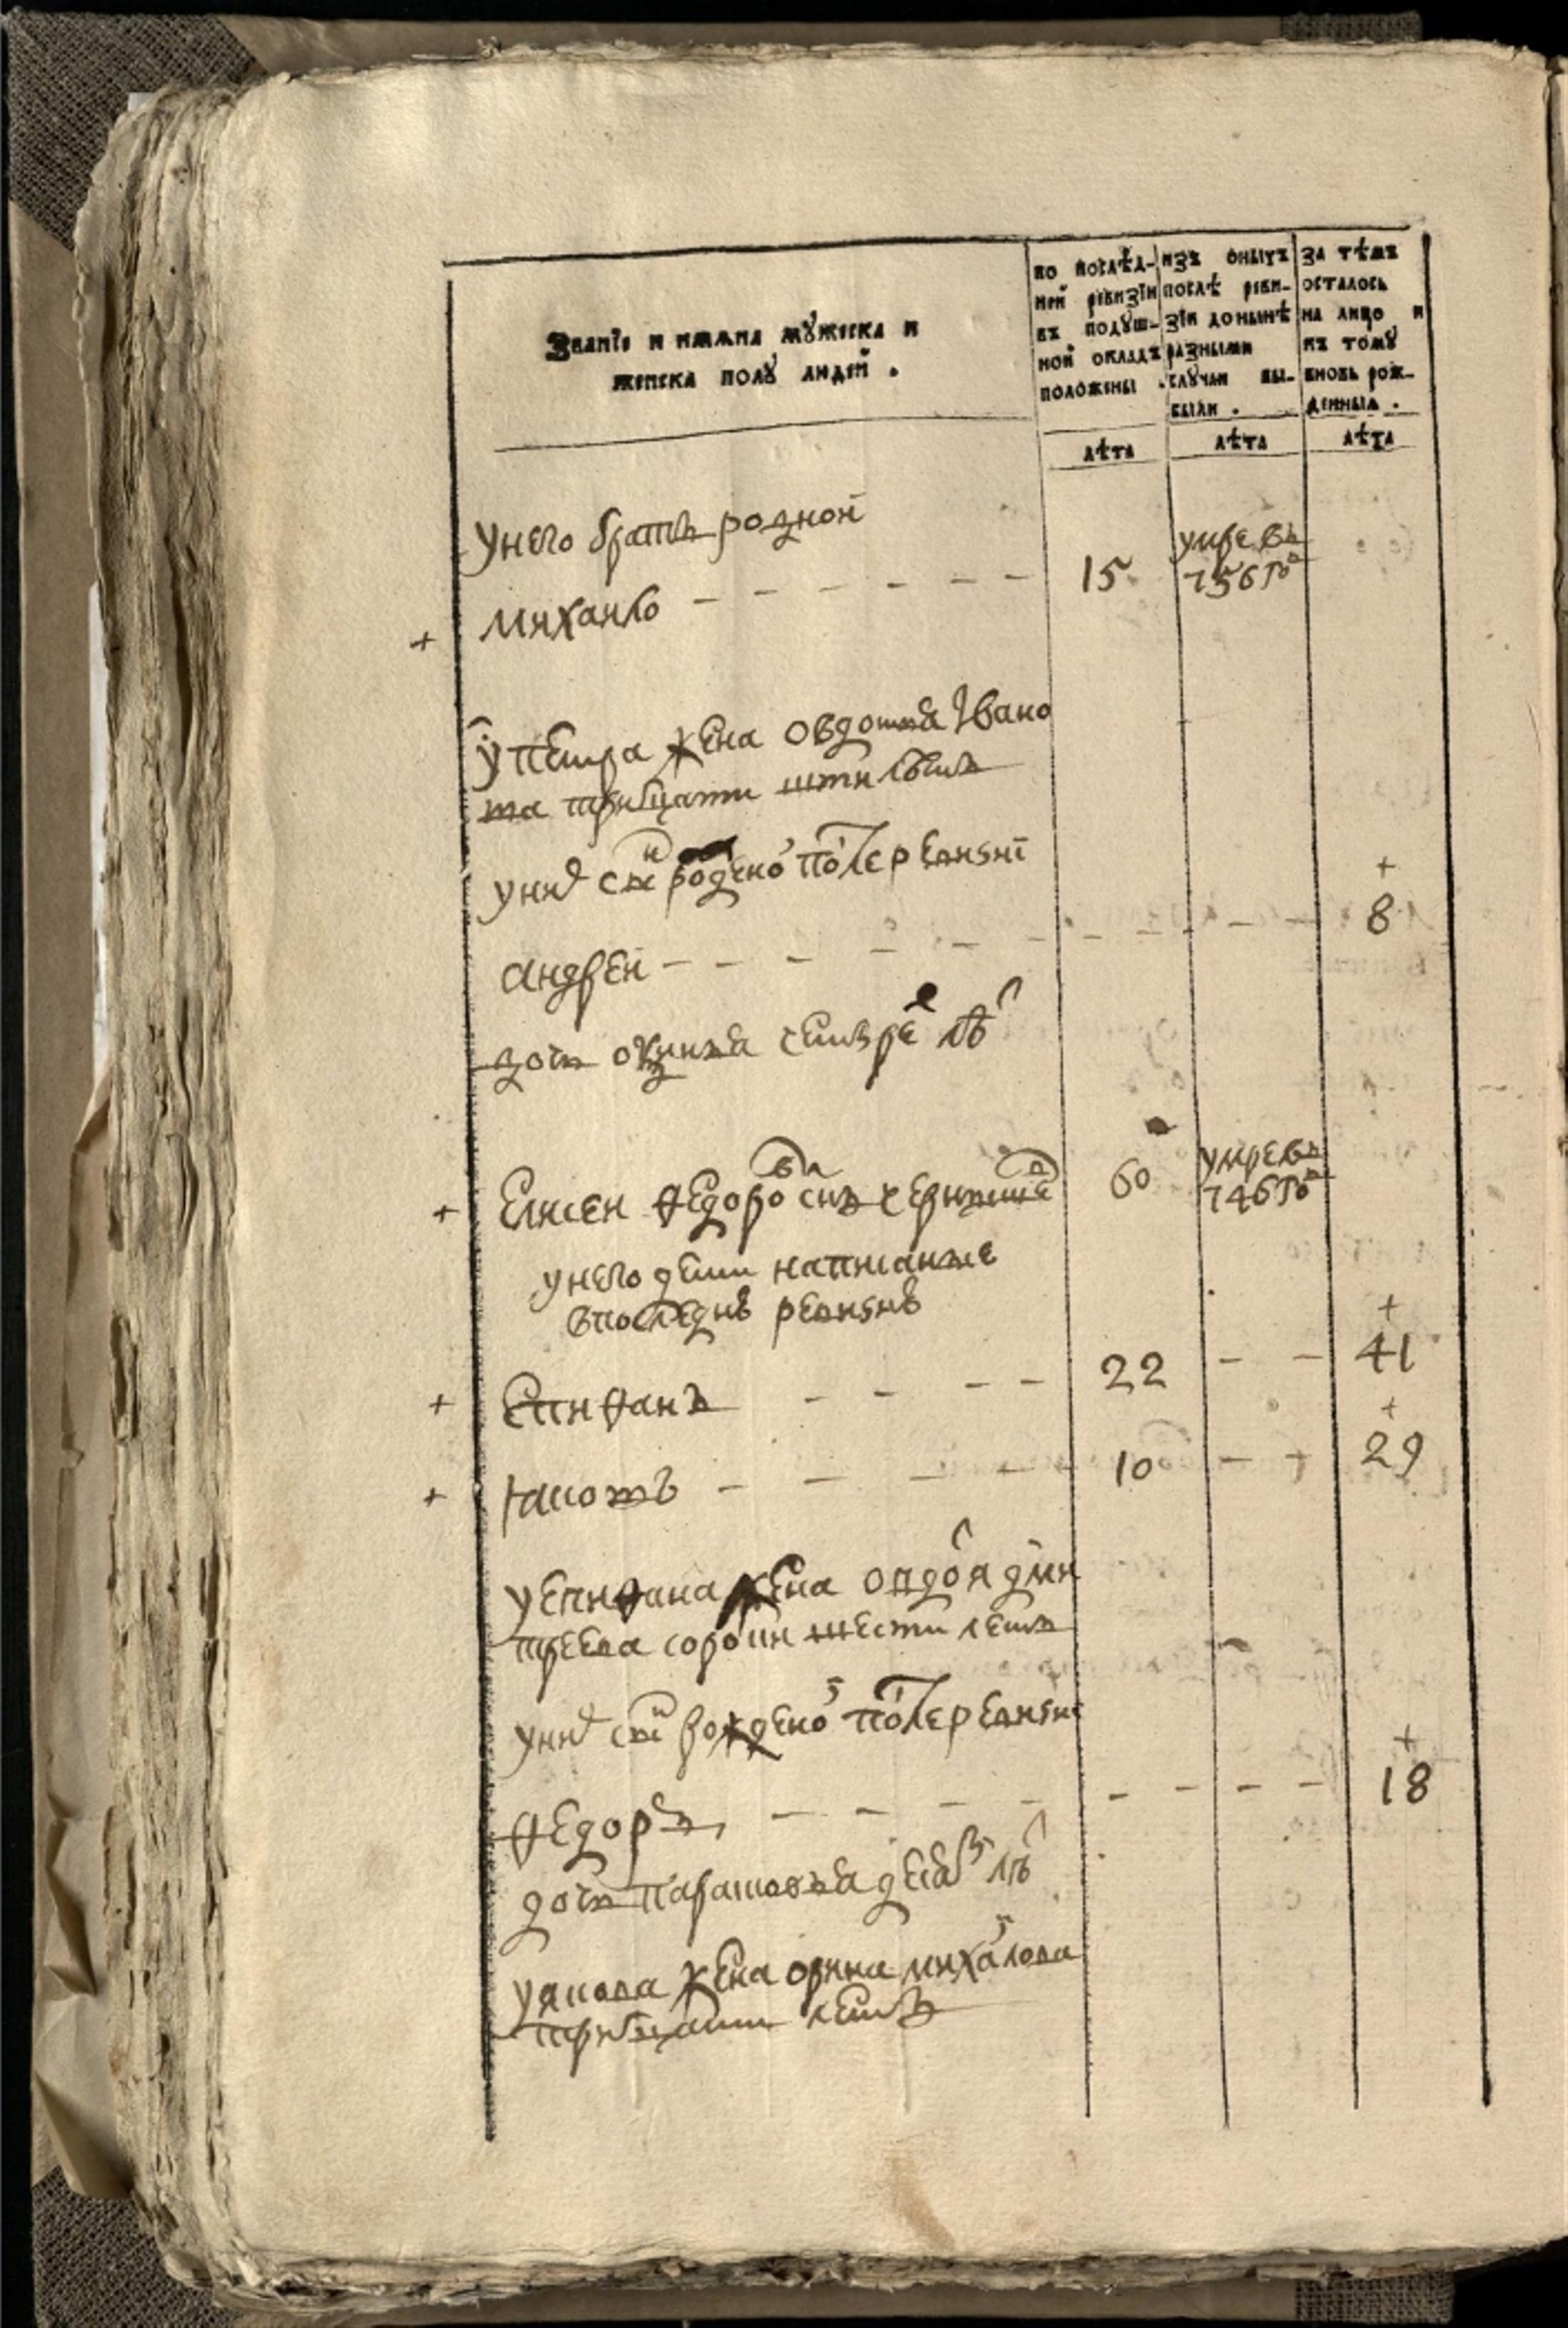 Званїе и имяна мꙋжеска и
женска полꙋ людей .
по послѣд-
ней ревизїи
въ подꙋш-
ной окладъ
положены .
изъ оныхъ
послѣ реви-
зїи донынѣ
разными
слꙋчаи вы-
были .
за тѣмъ
осталось
на лицо и
къ томꙋ
вновь рож-
денныя .
лѣта
лѣта
лѣта
унего братъ родной
михаило 15 умре въ
756 го
у петра жена овдотья Iвано
та тритцати лѣтъ
уни сн роѫдено после ревизиі
андреи 8
дочь четыре лѣ
Елисеи федоро снъ 60 умре въ
746 го
унего дети написаные
впоследнѣ ревизиѣ
Епифанъ 22 41
Iаковъ 10 29
уепифана жена овдоя дми
треева сороки шести летъ
уни сн рожено после ревизиі
федоръ 18
дочь парасковья лѣ
уякова жена орина михалова
тритцати летъ